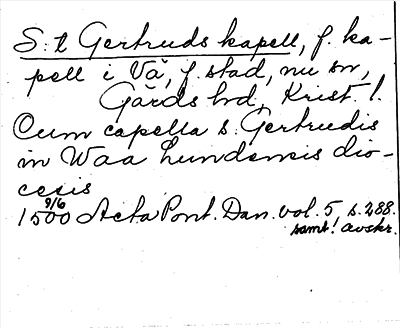 S:t Gertruds kapell, f. ka-
pell i Vä, f. stad, nu sn,
Gärds hd, Krist. l.
Cum capella s. Gertrudis
in Waa Lundensis dio-
cesis
9/6
1500 Acta Pont. Dan. vol. 5, s. 288.
samt! avskr.